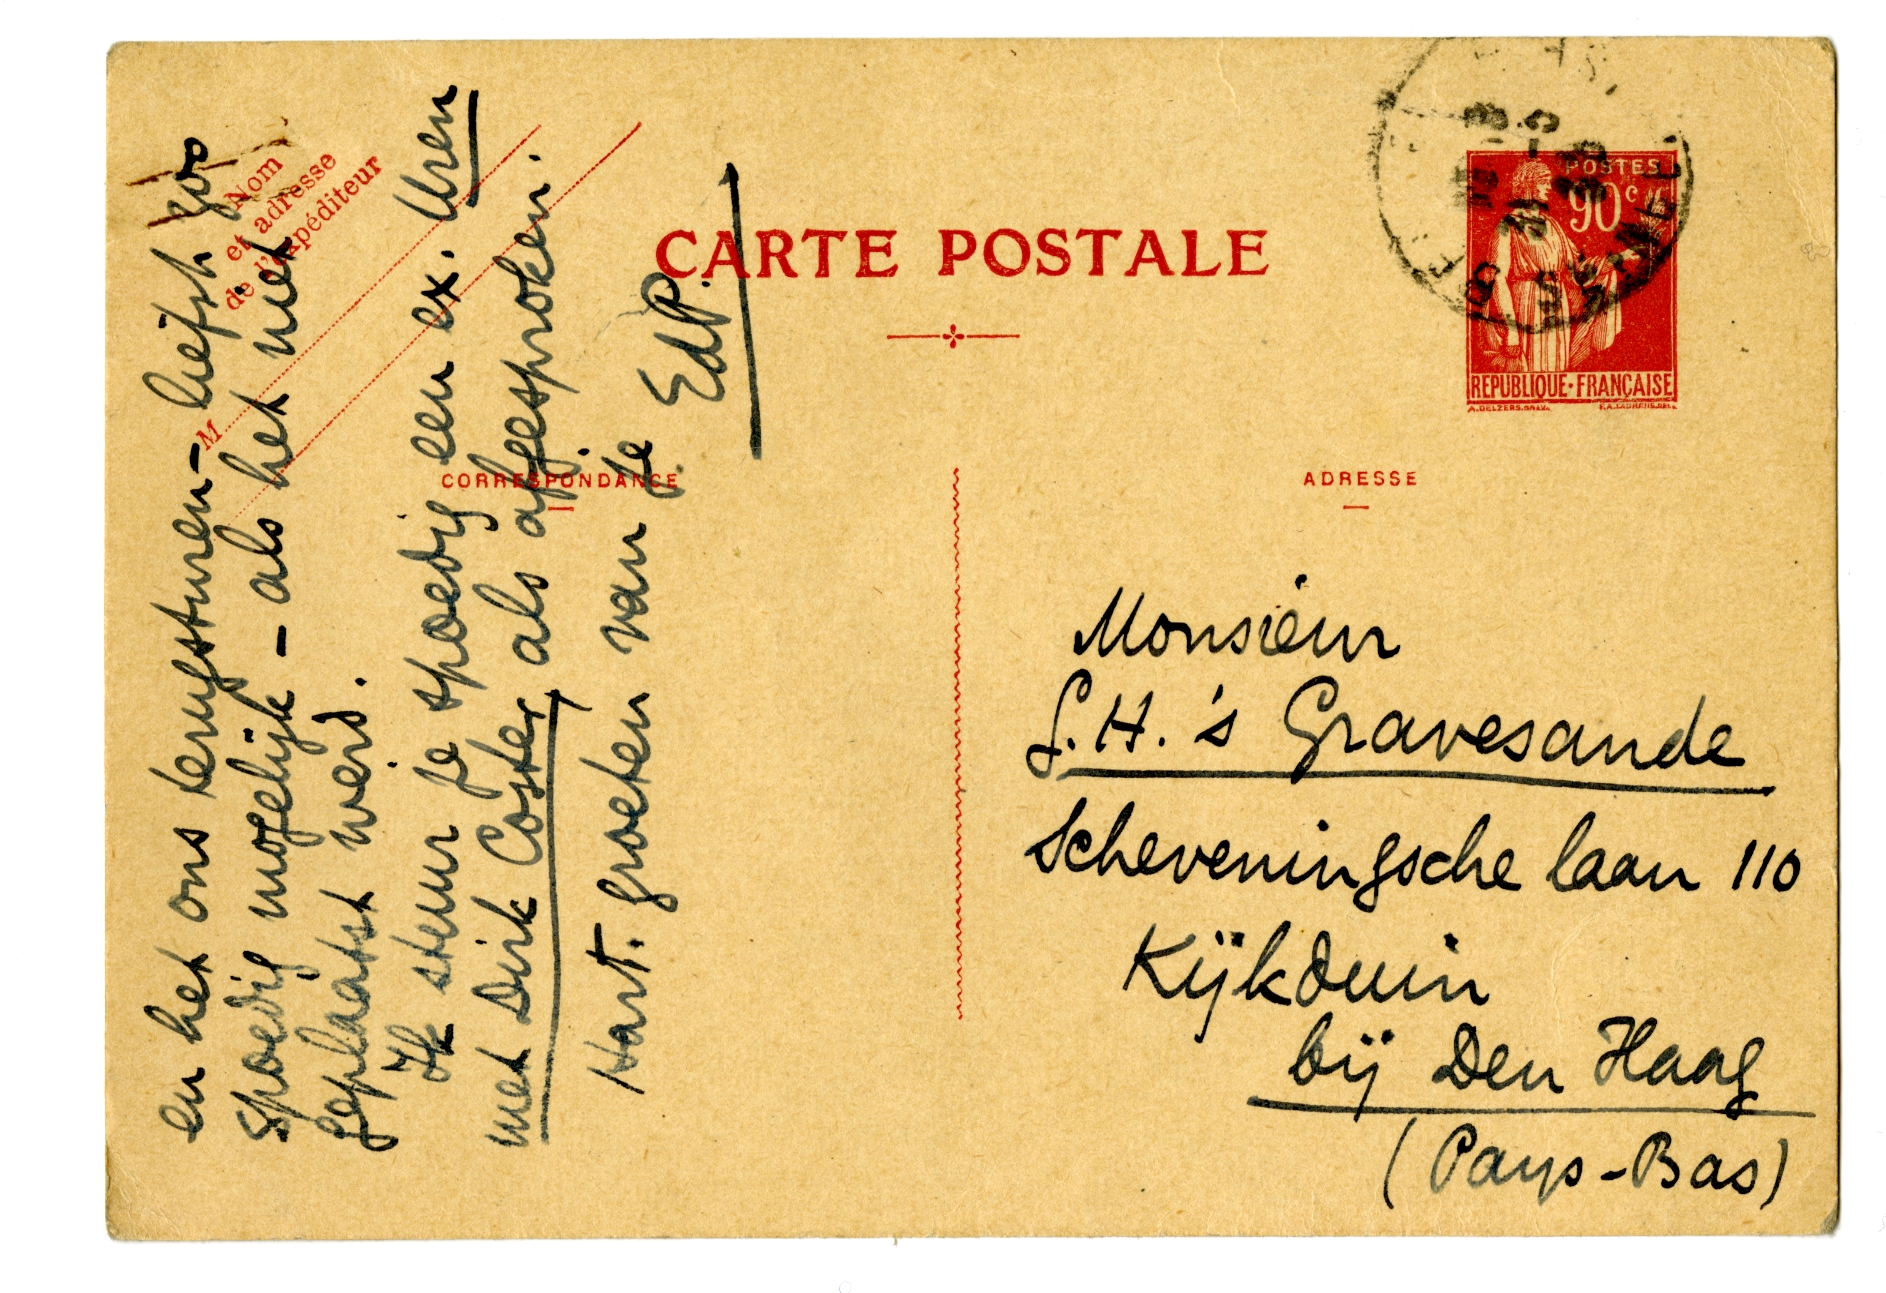 en het ons terugsturen - liefst zoo
spoedig mogelijk - als het niet
geplaatst werd.
Ik stuur je spoedig een ex. Uren
met Dirk Coster, als afgesproken.
Hart. groeten van je
EdP.
Nom
et adresse
de l'expéditeur
M
CARTE POSTALE
CORRESPONDANCE
ADRESSE
POSTES
90c
REPUBLIQUE·FRANÇAISE
Monsieur
G.H. 's Gravesande
Scheveningsche laan 110
Kijkduin
bij Den Haag
(Pays-Bas)